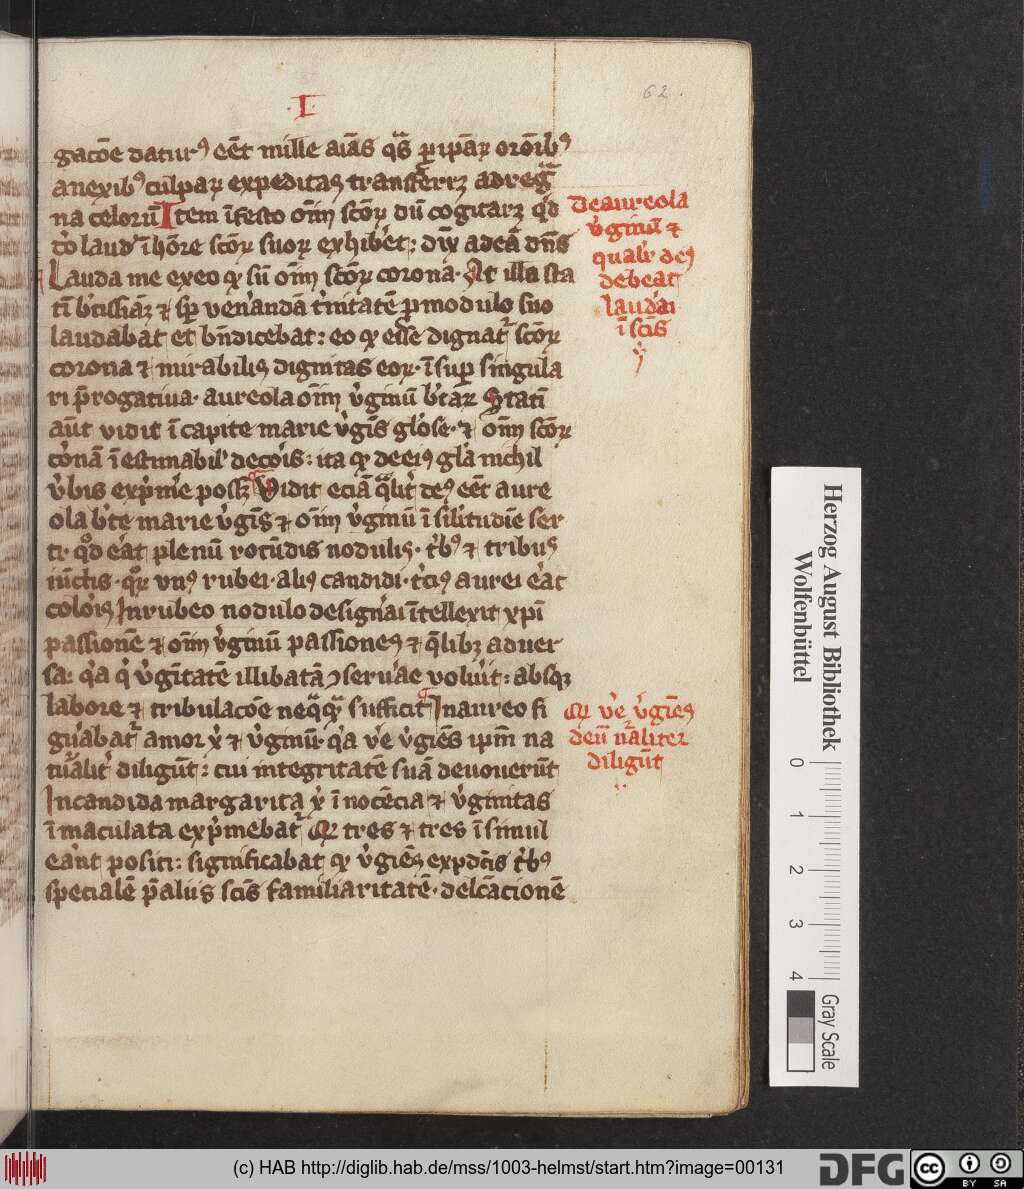 ·I·
62.
gacōe datur⁹ eēt mille aīas q̄s p̲ ip̄aꝝ orōīb⁹
a nexib⁹ culpaꝝ expeditas transferrꝫ ad reg
na celorū Item ī festo om̄ scōꝝ dū cogitarꝫ qd̓
laud ī hōre scōꝝ suoꝝ exhibet: dn̄s
Lauda me ex eo qꝛ sū om̄ scōꝝ corona· At illa sta
tī & sp̄ venandā tnitatē p modulo suo
laudabat et bn̄dicebat: eo qꝛ esse dignat scōꝝ
corona & mirabilis dignitas eoꝝ· ī sup singula
ri p̄rogatiua· aureola om̄ v̓ginū btaꝝ Statī
aūt vidit ī capite marie v̓gīs glōse· & om̄ scōꝝ
cōnā ī estimabil decois: ita qꝛ de ei⁹ gla nichil
v̓bis exp̓me possꝫ Vidit eciā q̄lit eēt aure
ola bte marie v̓gīs & om̄ v̓ginū ī silitudīe ser
ti· qd̓ eat plenū rotūdis nodulis· tb⁹ & trib⁹
iūctis· qꝝ vn⁹ rubei· ali⁹ candidi· tci⁹ aurei eāt
colois In rubeo nodulo designai ītellexit xpi
passionē & om̄ v̓ginū passiones & q̄libꝫ aduer
sa: q̓a q̓ v̓gītatē illibatā ɔseruae voluit: absqꝫ
labore & tribulacōe neq̄q̄ sufficit In aureo fi
gu̓abat amor x̓ & v̓ginū· q̓a ve v̓gīes ip̄m na
tu̓alit diligūt: cui integritatē suā deuouerūt
In candida margarita x̓ ī nocēcia & v̓ginitas
īmaculata exp̓mebat Qꝛ tres & tres ī simul
eānt positi: significabat qꝛ v̓gīes tb⁹
specialē p̄ aliis scīs familiaritatē· delcācionē
De aureola
v̓ginū &
qualit de⁹
debeat
laudai
ī scīs
Qꝛ ve v̓gīes
deū nālīter
diligūt
Herzog August Bibliothek
Wolfenbüttel
0 1 2 3 4
Gray Scale
(c) HAB http://diglib.hab.de/mss/1003-helmst/start.htm?image=00131
DFG
cc
BY SA